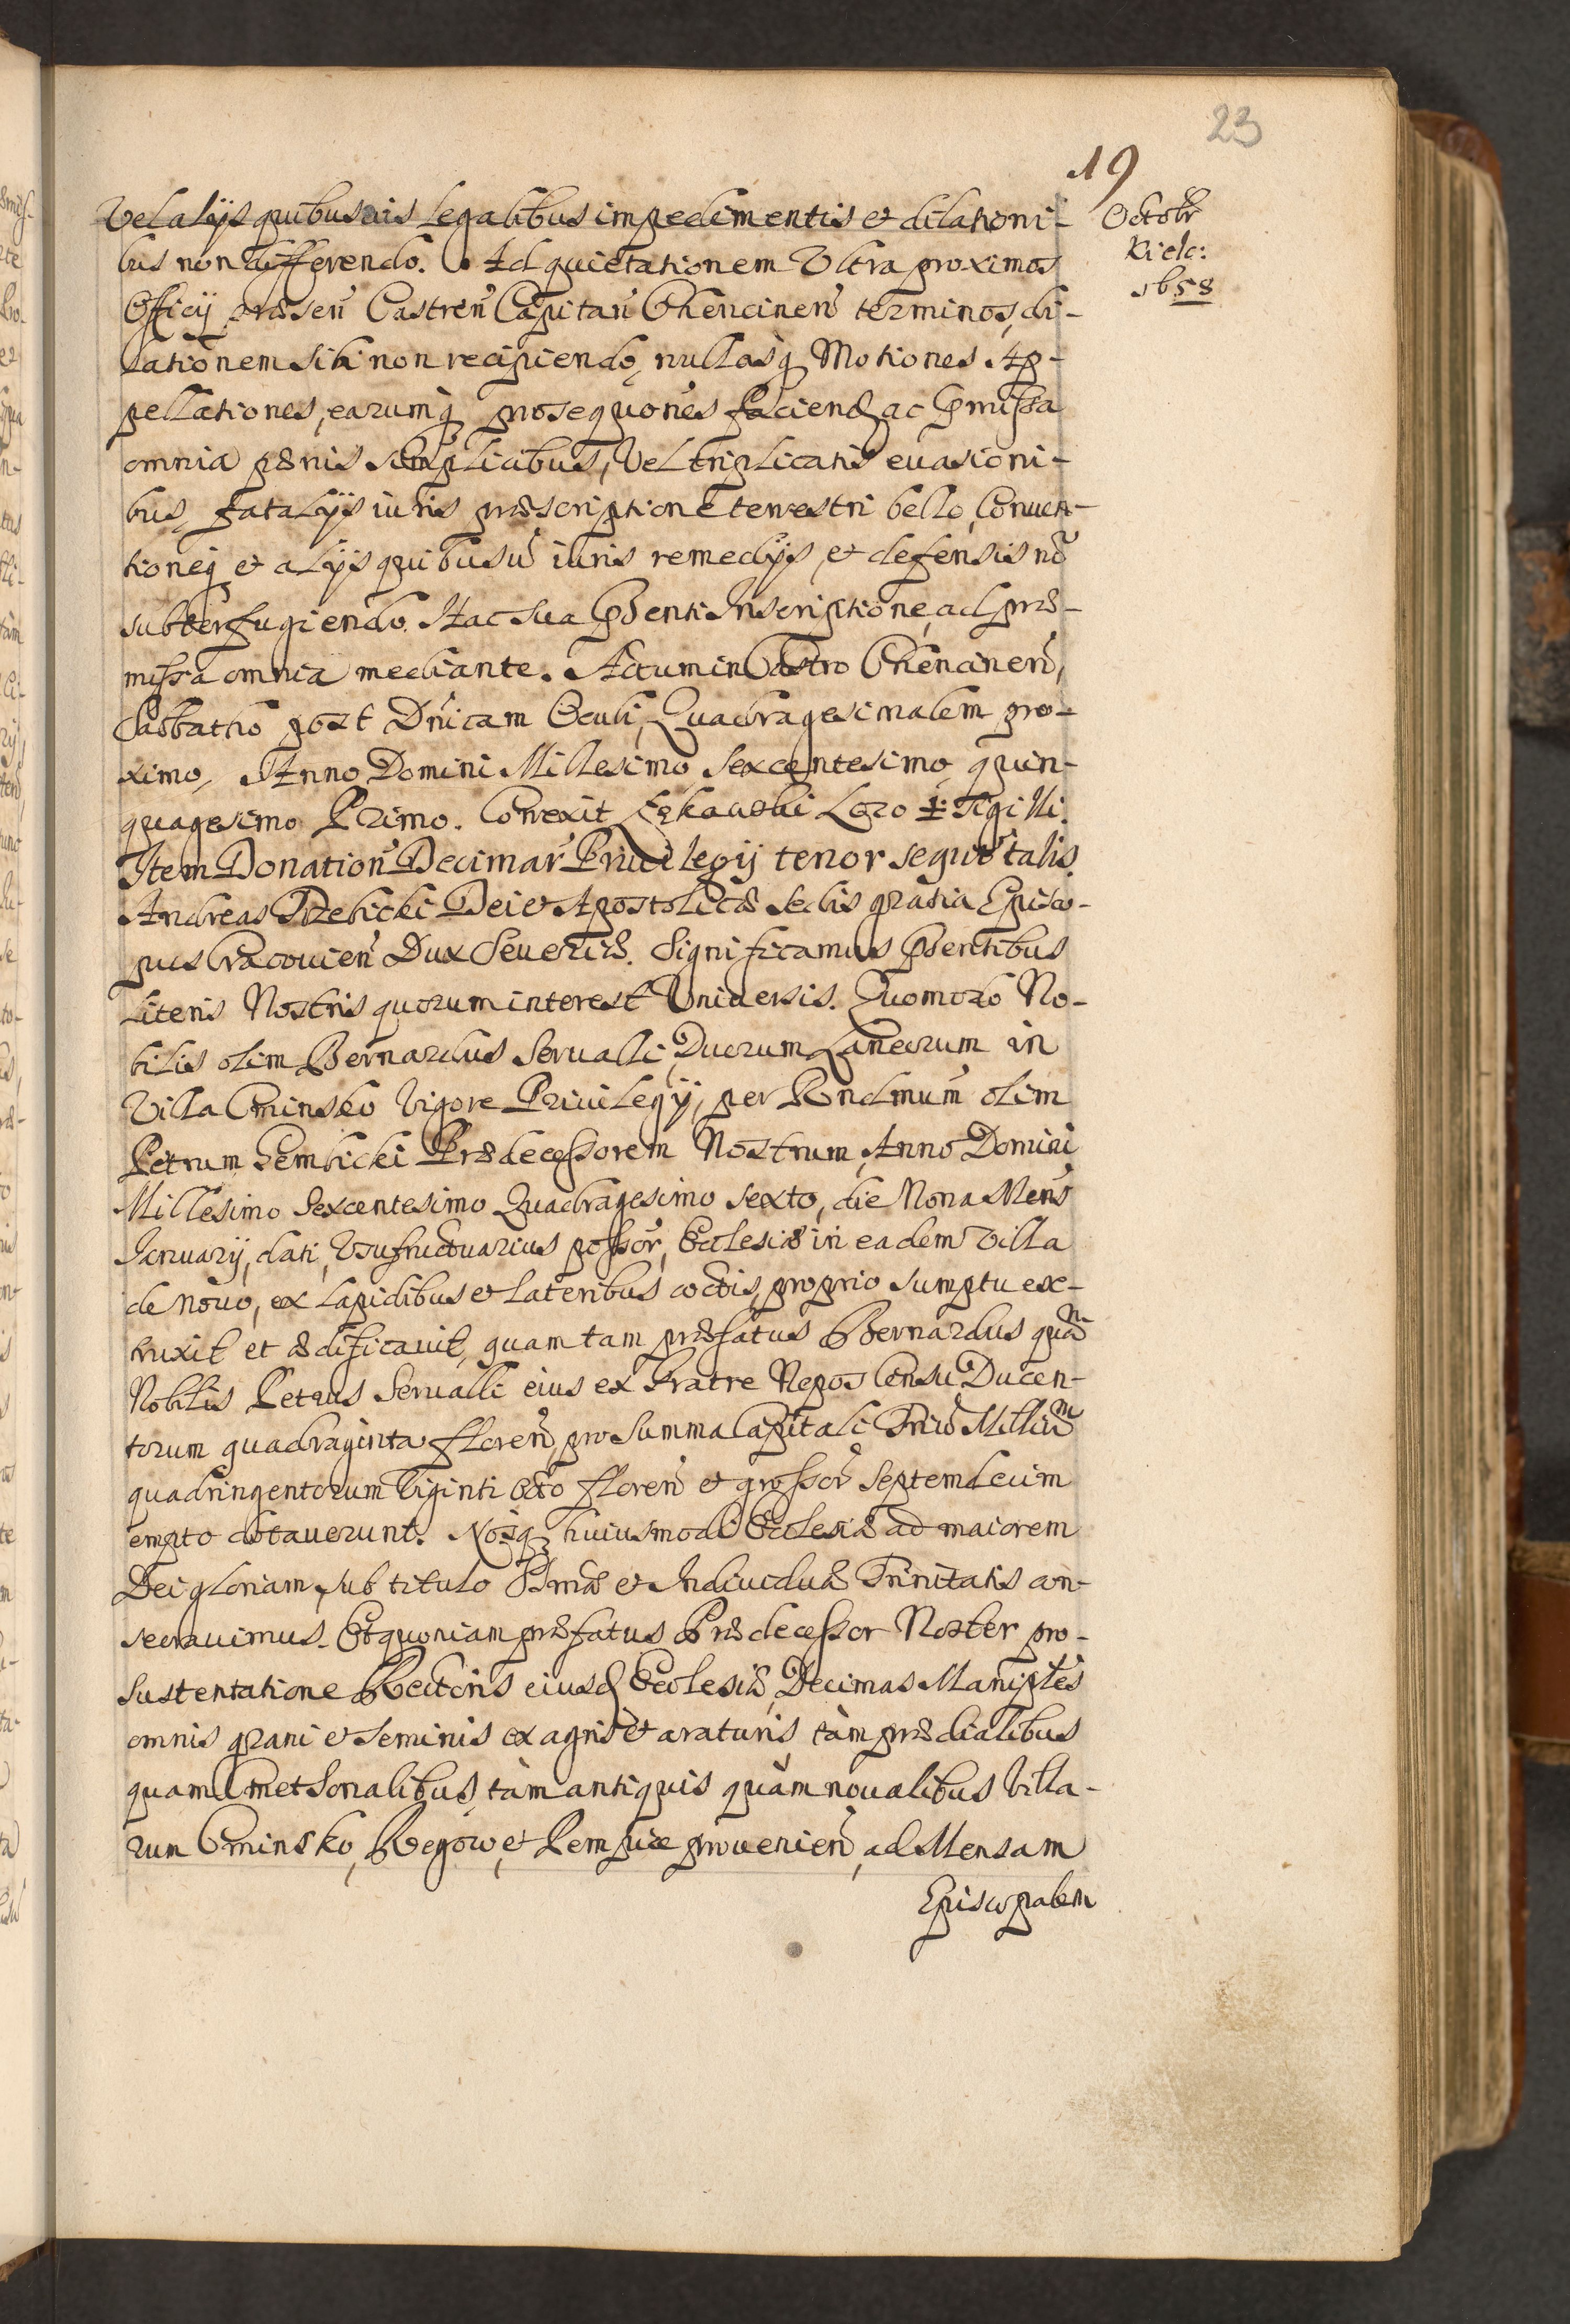 23
19
Octobr
Kielc:
1658
Vel alijs quibusuis legalibus impedimentis et dilationi-
bus non differendo. Ad quietationem Vltra proximos
Officij præsen̄ Castren̄ Capitan̄ Chencinen̄ terminos, di-
lationem sibi non recipiendo, nullasq́ Motiones Ap-
pellationes, earumq́ prosequōnes faciend ac pmissa
omnia pœnis simplicibus, Vel triplicatis euasioni-
bus, fatalijs iuris præscriptione terrestri bello, Conuen-
tioneq́ et alijs quibusū iuris remedijs, et defensis nō
subterfugiendo. Hac sua pñti Inscriptione, ad præ-
missa omnia mediante. Actum in Castro Chencinen̄,
Sabbatho post Dn̄icam Oculi, Quadragesimalem pro-
ximo, Anno Domini Millesimo Sexcentesimo, quin-
quagesimo Primo. Correxit Łękawski Loco ‡ Sigilli.
Item Donation̄ Decimar̄ Priuilegij tenor sequit̄ talis.
Andreas Trzebicki Dei et Apostolicæ Sedis gratia Episco-
pus Cracouien̄ Dux Seueriæ. Significamus pñtibus
Literis Nostris quorum interest Vniuersis. Quomodo No-
bilis olim Bernardus Serualli, Duorum Laneorum in
Villa Cminsko Vigore Priuilegij, per Rndmum̄ olim
Petrum Gembicki Prædecessorem Nostrum, Anno Domini
Millesimo Sexcentesimo Quadragesimo sexto, die Nona Mens̄
Januarij, dati, Vsufructuarius possor̄, Ecclesiæ in eadem Villa
de nouo, ex Lapidibus et Lateribus coctis, proprio sumptu ex-
truxit et ædificauit, quam tam præfatus Bernardus quā
Nobilis Petrus Serualli eius ex Fratre Nepos Censu Ducen-
torum quadraginta floren̄, pro Summa Capitali Triū Milliū
quadringentorum Viginti Octo floren̄ et grossor̄ Septemdecim
empto dotauerunt. Nosq́ huiusmodi Ecclesiæ ad maiorem
Dei gloriam, sub titulo SSmæ et Indiuiduæ Trinitatis con-
secrauimus. Et quoniam præfatus Prædecessor Noster pro
sustentatione Rectoris eiusd Ecclesiæ, Decimas Maniplēs
omnis grani et seminis ex agris et araturis, tàm prædialibus
quam Cmethonalibus, tàm antiquis quàm noualibus Villa-
rum Cminsko, Begow, et Pempice prouenien̄, ad Mensam
Episcopalem